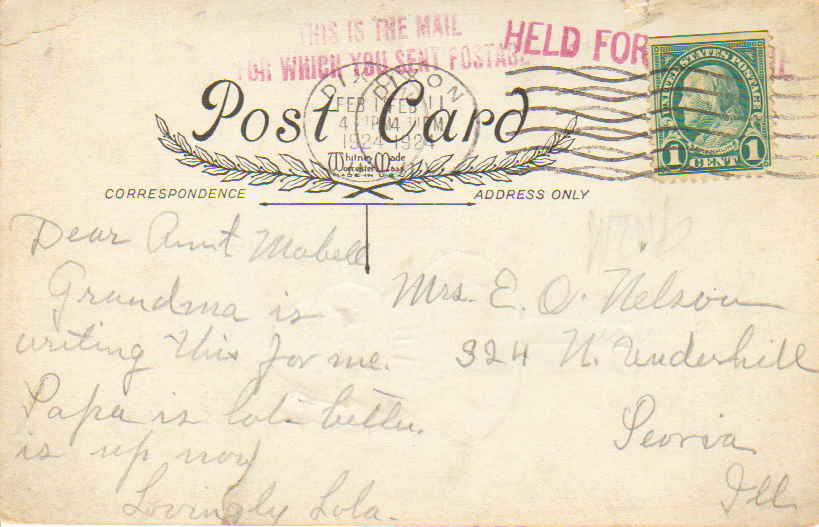 THIS IS THE MAIL
FOR WHICH YOU SENT POSTAGE
HELD FOR
DIXON
DIXON
FEB 11
4 PM
1924
1924
UNITED STATES POSTAGE
1 CENT 1
Post Card
Whitney Made
Worcester Mass
MADE IN U.S.A.
CORRESPONDENCE
ADDRESS ONLY
Dear Aunt Mabell
Grandma is
writing this for me.
Papa is lots better.
is up now
Lovingly Lola.
Mrs. E. O. Nelson
324 N. Underhill
Peoria
Ill.